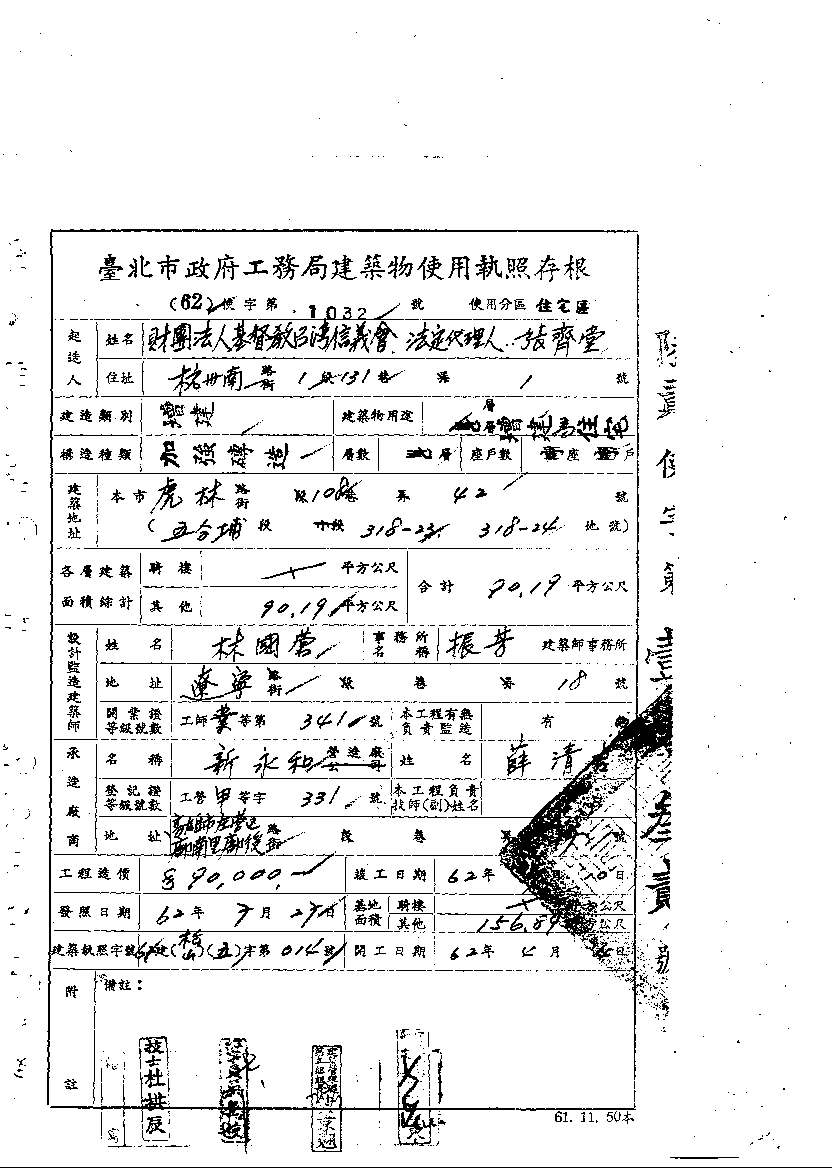 臺北市政府工務局建築物使用執照存根
(62)使字第 1032 號 使用分區 住宅區
起造人 姓名 財團法人基督教台灣信義會 法定代理人 張齊堂
住址 杭州南 路街 1 段 131 巷 弄 1 號
建造類別 增建 建築物用途 層 增建為住宅
構造種類 加強磚造 層數 層 座戶數 壹座 壹戶
建築地址 本市 虎林 路街 段 108 巷 弄 42 號
(五分埔 段 小段 318-23 318-24 地號)
各層建築面積綜計 騎樓 平方公尺 合計 90.19 平方公尺
其他 90.19 平方公尺
設計監造建築師 姓名 林國營 事務所名稱 振芳 建築師事務所
地址 遼寧 路街 段 巷 弄 18 號
開業證等級號數 工師業等第 341 號 本工程有無負責監造 有
承造廠商 名稱 新永和 營造廠公司 姓名 薛清
登記證等級號數 工營甲等字 331 號 本工程負責技師(副)姓名
地址 高雄市左營區廍南里廍後 路街 段 巷 弄 號
工程造價 $90,000 竣工日期 62年 10日
發照日期 62年 月 日 基地面積 騎樓 平方公尺
其他 156.89 平方公尺
建築執照字號 建(松山)(五)字第 014 號 開工日期 62年 4月 日
附註 備註:
技士杜拱辰
61. 11. 50本